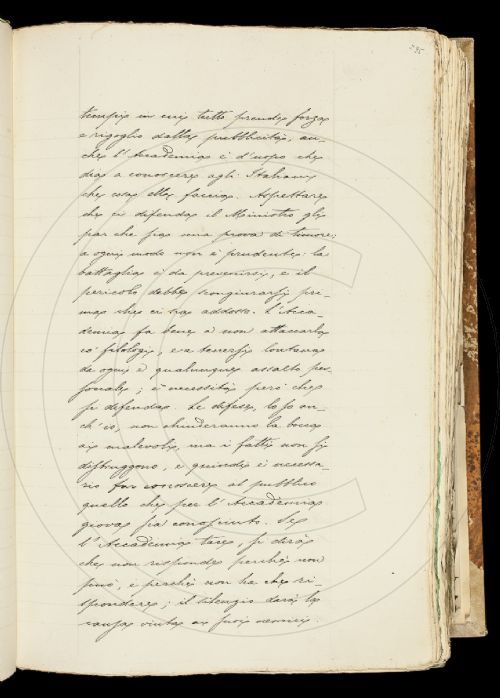 595
tempi in cui tutto prende forza
e rigoglio dalla pubblicità, an-
che l'Accademia è d'uopo che
dia a conoscere agli Italiani
che cosa ella faccia. Aspettare
che ci difenda il Ministro gli
par che sia una prova di timore;
a ogni modo non è prudente: la
battaglia è da prevenirsi, e il
pericolo debbe scongiurarsi pri-
ma che ci sia addosso. L'Acca-
demia fa bene a non attaccarla
co' filologi, e a tenersi lontana
da ogni e qualunque assalto per-
sonale; è necessità però che
si difenda. Le difese, lo so an-
ch'io, non chiuderanno la bocca
ai malevoli, ma i fatti non si
distruggono, e quindi è necessa-
rio far conoscere al pubblico
quello che per l'Accademia
giova sia conosciuto. Se
l'Accademia tace, si dirà
che non risponde perchè non
può, e perchè non ha che ri-
spondere; il silenzio darà la
causa vinta ai suoi nemici.